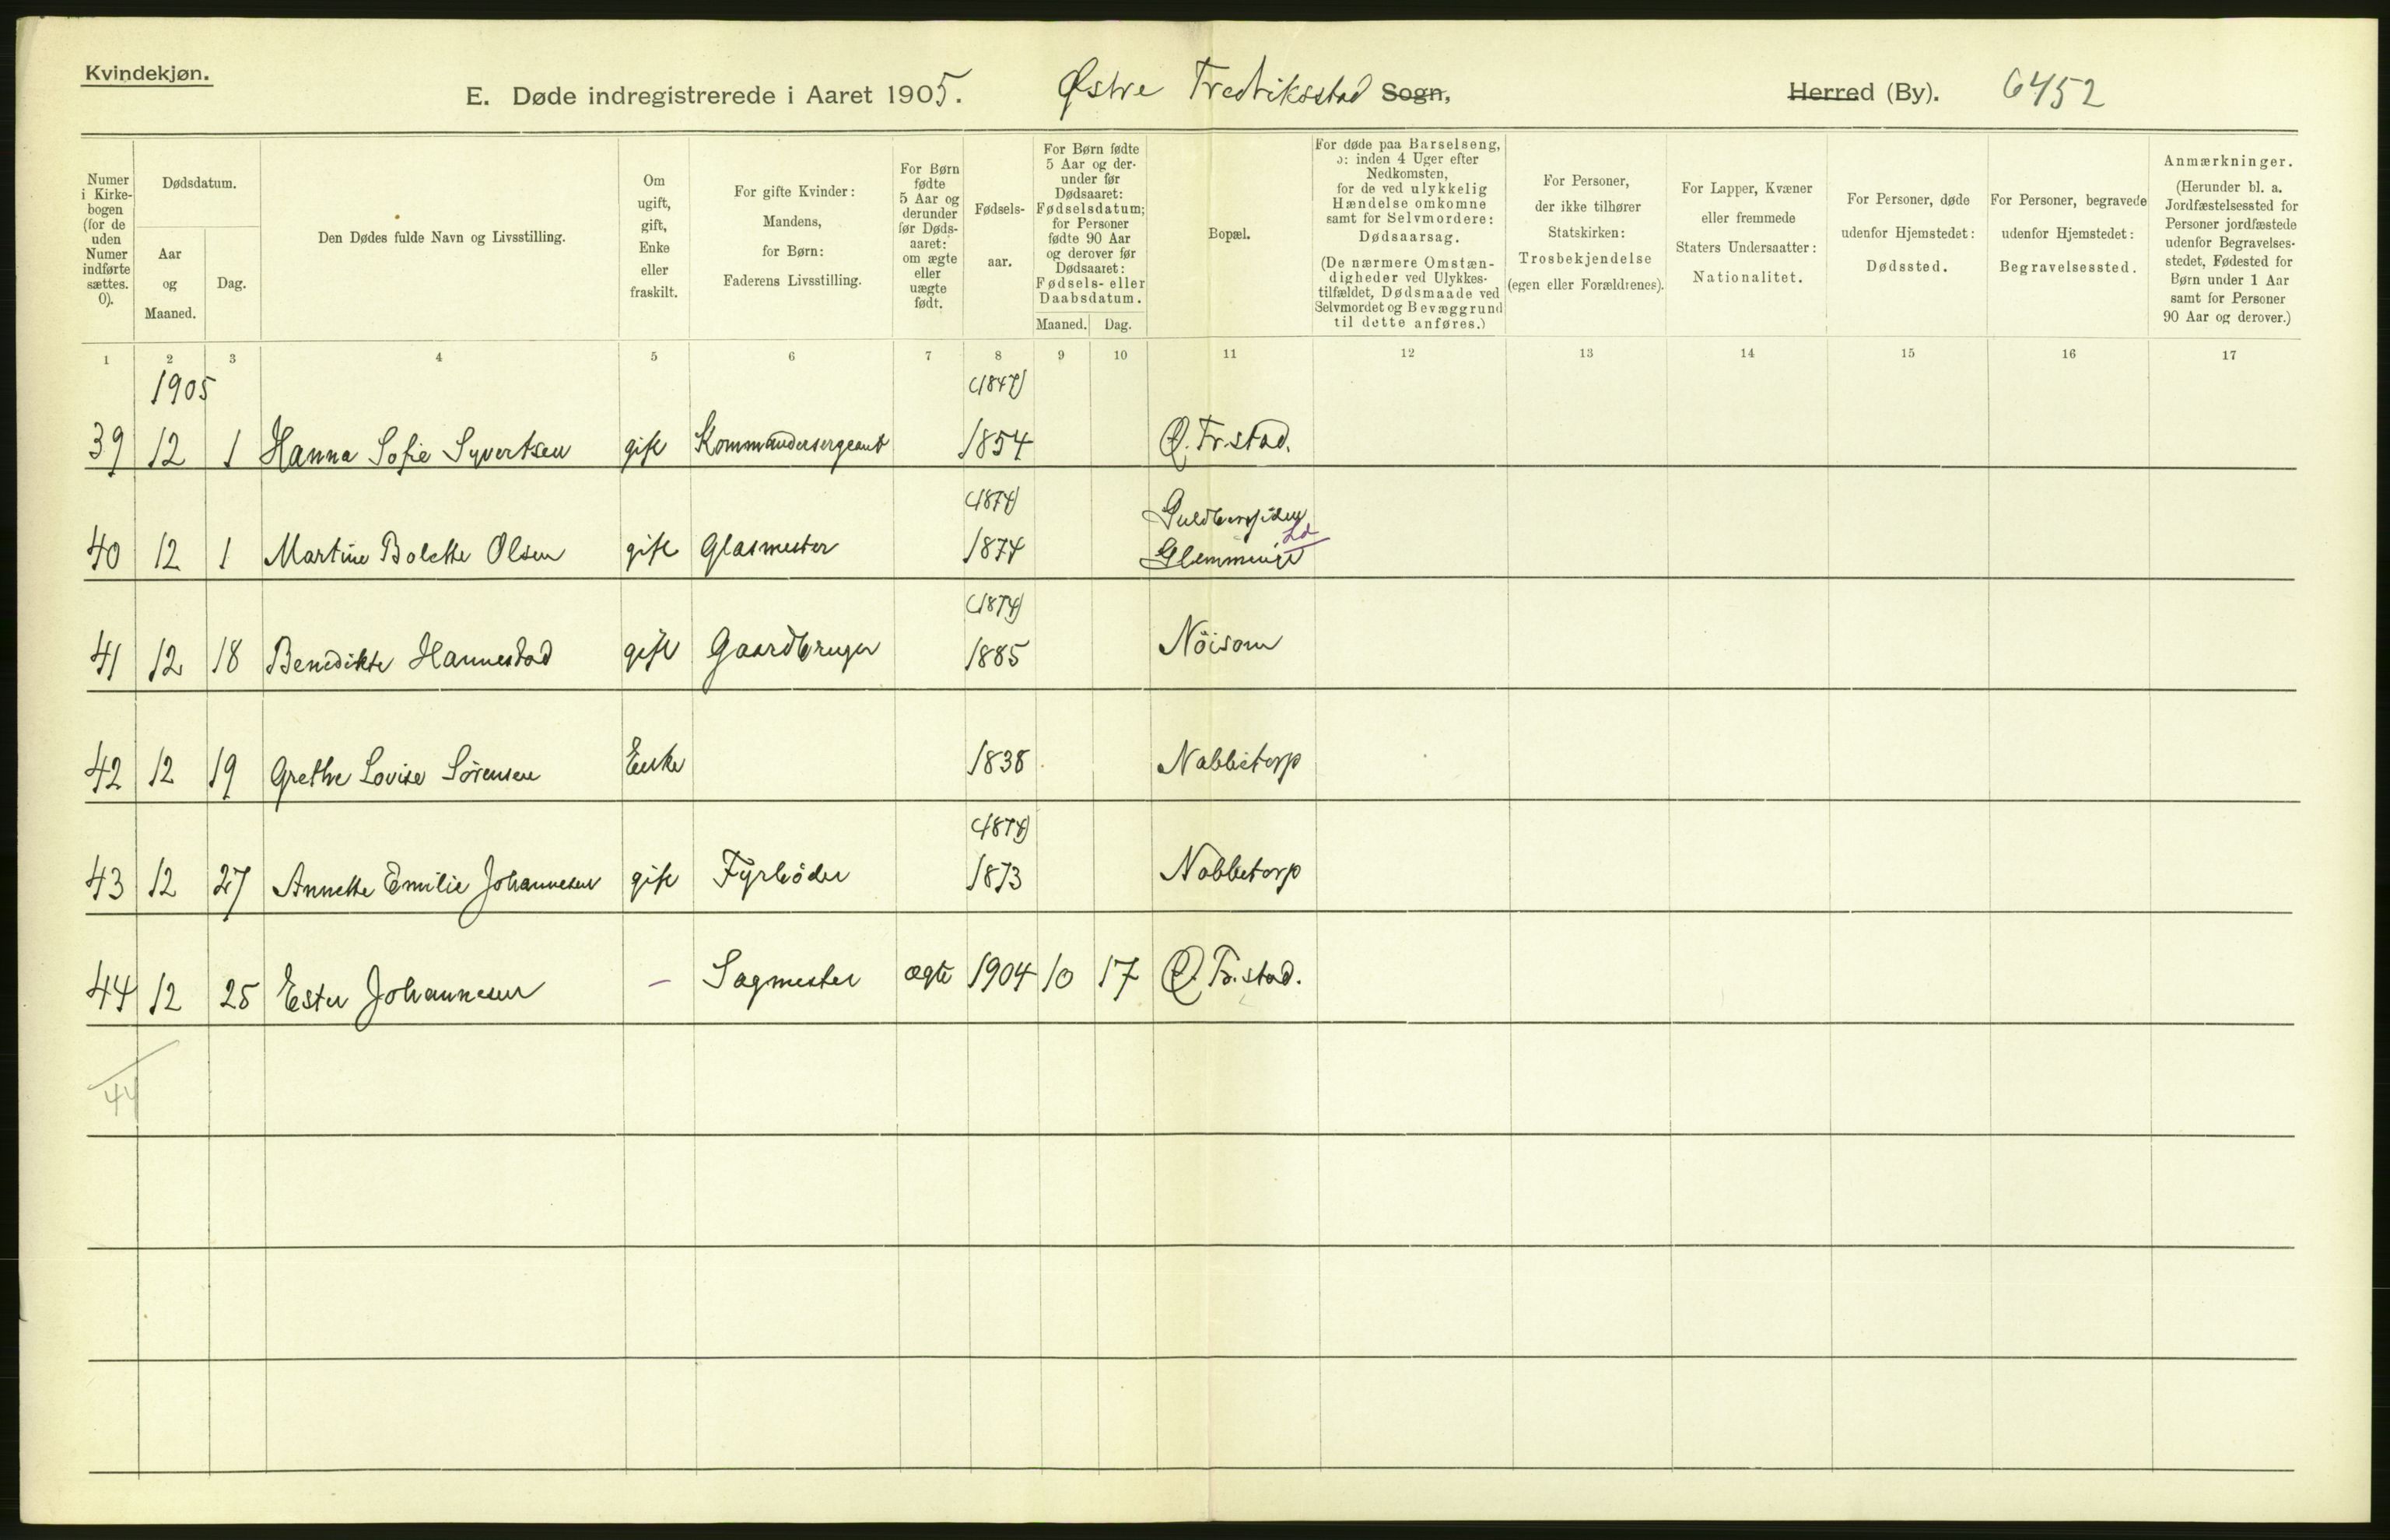 Kvindekjøn.
E. Døde indregistrerede i Aaret 1905. Østre Fredriksstad Sogn, Herred (By). 6452
Numer i Kirkebogen (for de uden Numer indførte sættes. 0).
Dødsdatum.
Aar og Maaned.
Dag.
Den Dødes fulde Navn og Livsstilling.
Om ugift, gift, Enke eller fraskilt.
For gifte Kvinder: Mandens, for Børn: Faderens Livsstilling.
For Børn fødte 5 Aar og derunder før Dødsaaret: om ægte eller uægte født.
Fødselsaar.
For Børn fødte 5 Aar og derunder før Dødsaaret: Fødselsdatum; for Personer fødte 90 Aar og derover før Dødsaaret: Fødsels- eller Daabsdatum.
Maaned. Dag.
Bopæl.
For døde paa Barselseng, ɔ: inden 4 Uger efter Nedkomsten, for de ved ulykkelig Hændelse omkomne samt for Selvmordere: Dødsaarsag. (De nærmere Omstændigheder ved Ulykkestilfældet, Dødsmaade ved Selvmordet og Bevæggrund til dette anføres.)
For Personer, der ikke tilhører Statskirken: Trosbekjendelse (egen eller Forældrenes).
For Lapper, Kvæner eller fremmede Staters Undersaatter: Nationalitet.
For Personer, døde udenfor Hjemstedet: Dødssted.
For Personer, begravede udenfor Hjemstedet: Begravelsessted.
Anmærkninger. (Herunder bl. a. Jordfæstelsessted for Personer jordfæstede udenfor Begravelsesstedet, Fødested for Børn under 1 Aar samt for Personer 90 Aar og derover.)
1 2 3 4 5 6 7 8 9 10 11 12 13 14 15 16 17
1905 (1847)
39 12 1 Hanna Sofie Syvertsen gift Kommandersergeant 1854 Ø. Fr.stad.
(1874) Guldbergsiden
40 12 1 Martine Bolette Olsen gift Glasmester 1874 Glemminge Ld
(1874)
41 12 18 Benedikte Hannestad gift Gaardbruger 1885 Nöisom
42 12 19 Grethe Lovise Sörensen Enke 1838 Nabbetorp
(1874)
43 12 27 Annette Emilie Johannesen gift Fyrböder 1873 Nabbetorp
44 12 25 Ester Johannesen – Sagmester ægte 1904 10 17 Ø. Fr.stad.
44